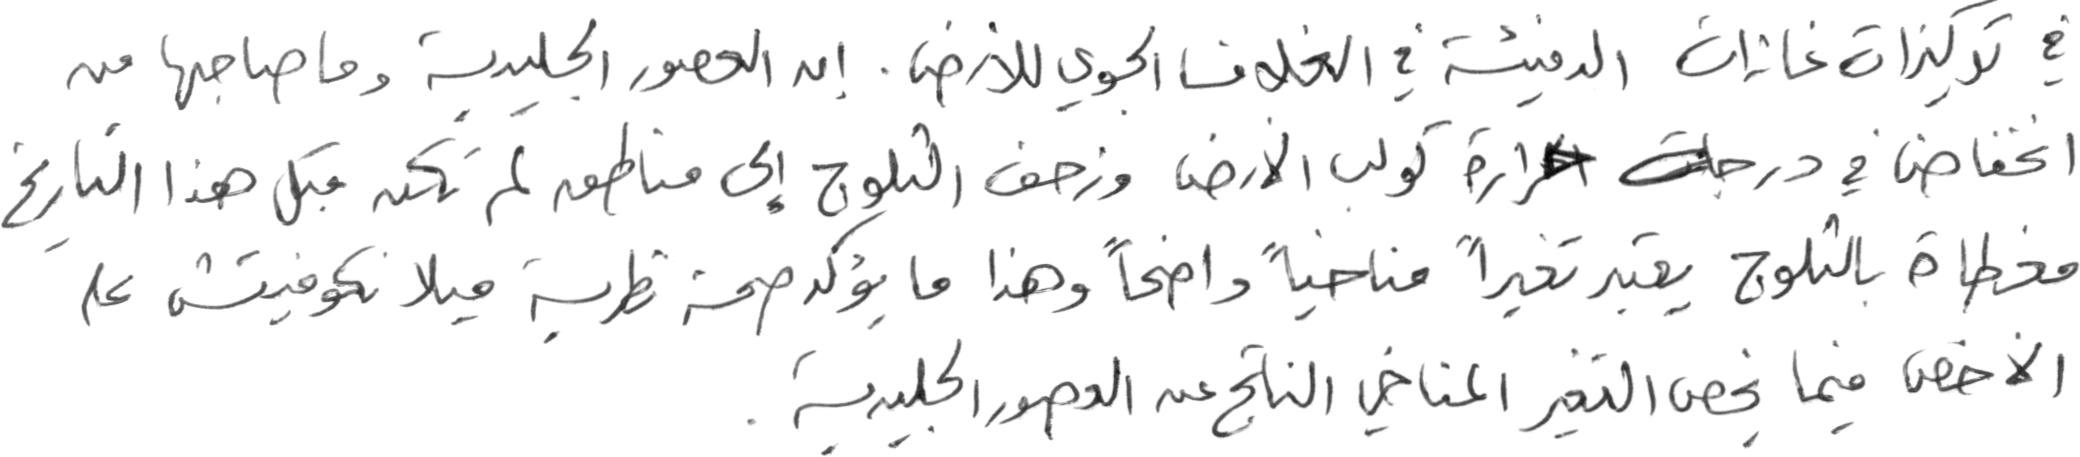 في تركيزات غازات الدفيئة في الغلاف الجوي للأرض. إن العصور الجليدية وما صاحبها من
انخفاض في درجة حرارة كوكب الأرض وزحف الثلوج إلى مناطق لم تكن قبل هذا التاريخ
مغطاة بالثلوج يعتبر تغيراً مناخياً واضحاً وهذا ما يؤكد صحة نظرية ميلانكوفيتش على
الأخص فيما يخص التغير المناخي الناتج عن العصور الجليدية.